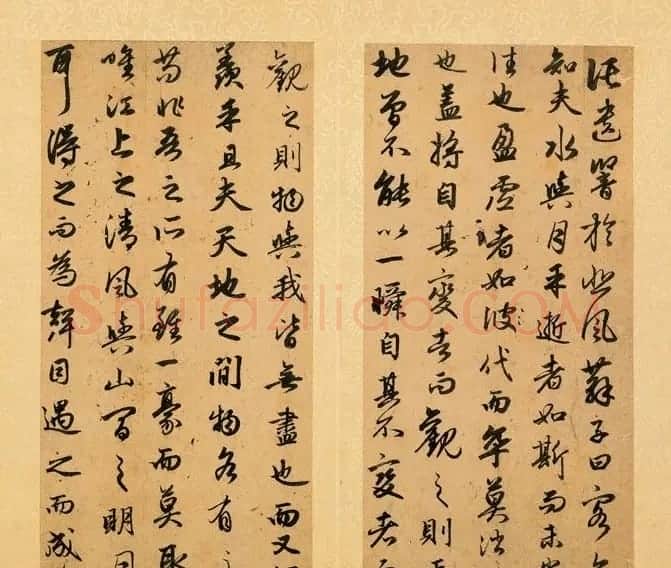 託遺響於悲風蘇子曰客
知夫水與月乎逝者如斯而未
往也盈虛者如彼代而卒莫消
也蓋將自其變者而觀之則
地曾不能以一瞬自其不變者
觀之則物與我皆無盡也而又
羨乎且夫天地之間物各有
苟非吾之所有雖一豪而莫取
唯江上之清風與山間之明月
耳得之而為聲目遇之而成
Shufaziliao.COM